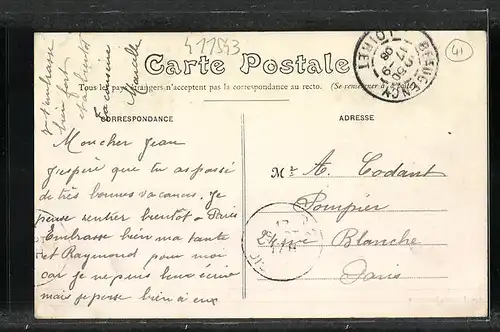 411543
41
Carte Postale
Tous les pays étrangers n'acceptent pas la correspondance au recto. (Se renseigner à la poste)
BEAUGENCY
LOIRET
17
08
CORRESPONDANCE
ADRESSE
Mon cher Jean
J'espère que tu as passé
de très bonnes vacances. Je
pense rentrer bientôt à Paris
Embrasse bien ma tante
et Raymond pour moi
car je ne puis leur écrire
mais je pense bien à eux
Je t'embrasse
bien fort
et à bientôt
Ta cousine
Marcelle
Mr A. Codant
Pompier
24 rue Blanche
Paris
17